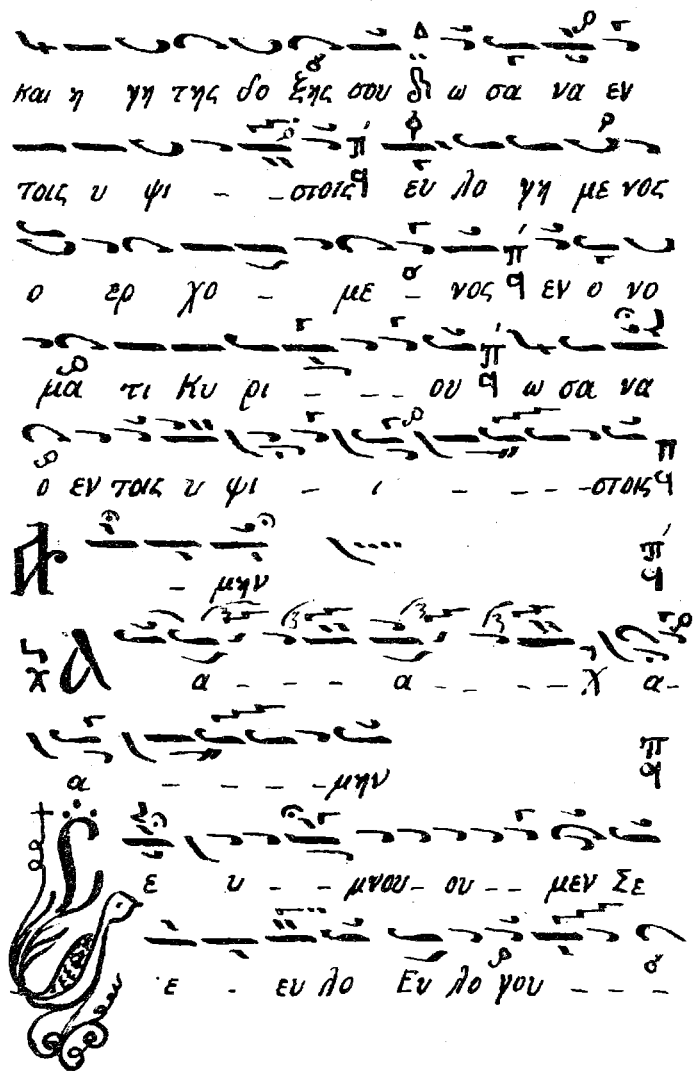 και η γη της δο ξης σου ω σα να εν
τοις υ ψι - - στοις ευ λο γη με νος
ο ερ χο - με - νος εν ο νο
μα τι Κυ ρι - - - ου ω σα να
ο εν τοις υ ψι - ι - - - - στοις
Α - μην
Α α - - - α - - - - χ α -
α - - - - - μην
Σ ε υ - - μνου - ου - - μεν Σε
ε - ευ λο Ευ λο γου - - - -